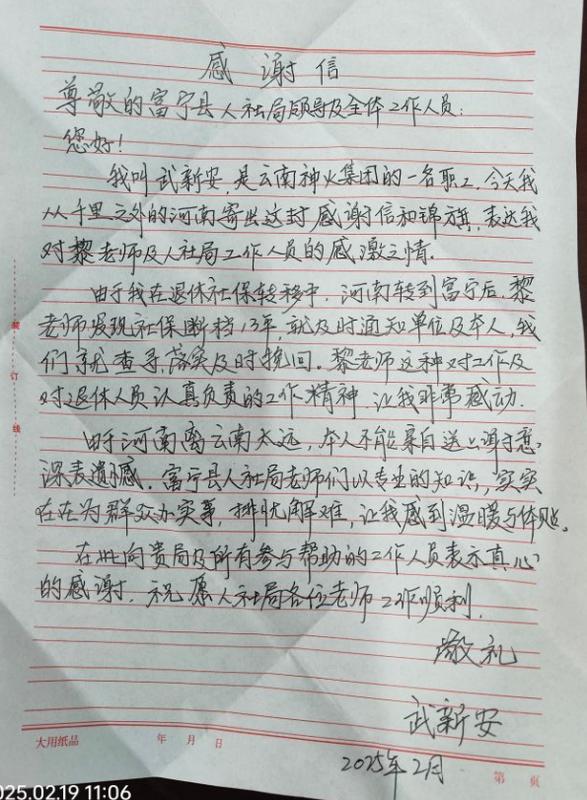 感谢信
尊敬的富宁县人社局领导及全体工作人员：
您好！
我叫武新安，是云南神火集团的一名职工，今天我
从千里之外的河南寄出这封感谢信和锦旗，表达我
对黎老师及人社局工作人员的感激之情．
由于我在退休社保转移中，河南转到富宁后，黎
老师发现社保断档13年，就及时通知单位及本人，我
们就查寻，落实及时挽回。黎老师这种对工作及
对退休人员认真负责的工作精神，让我非常感动．
由于河南离云南太远，本人不能亲自送上谢意，
深表遗憾．富宁县人社局老师们以专业的知识，实实
在在为群众办实事，排忧解难，让我感到温暖与体贴．
在此向贵局及所有参与帮助的工作人员表示真心
的感谢．祝愿人社局各位老师工作顺利．
敬礼
武新安
2025年2月
装
订
线
大用纸品 年 月 日 第 页
025.02.19 11:06